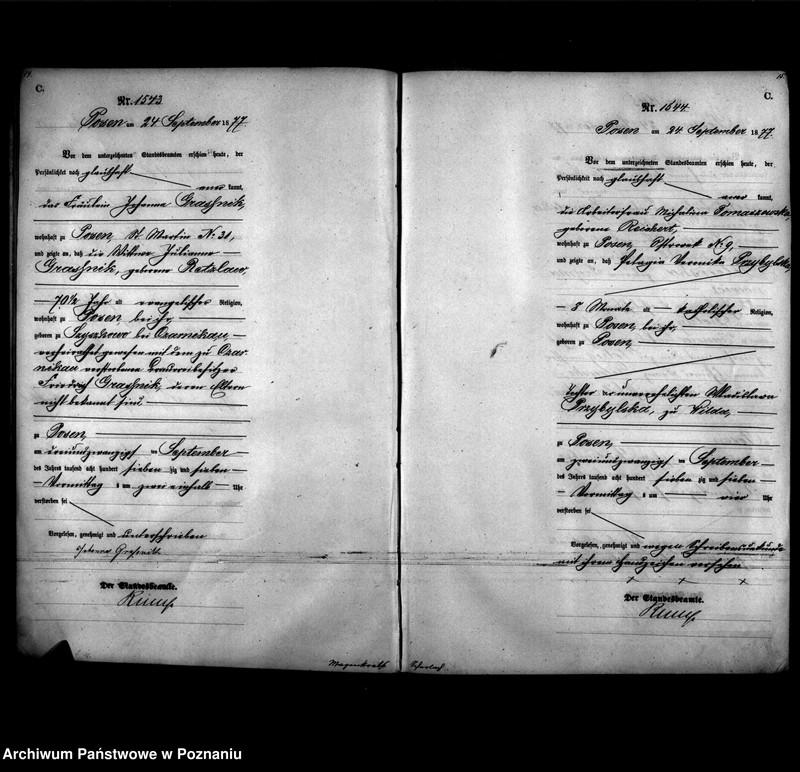 C.
Nr. 1543.
Posen am 24 September 1877
Vor dem unterzeichneten Standesbeamten erschien heute, der
Persönlichkeit nach glaubhaft
aner kannt,
das Fräulein Johanna Graßnik,
wohnhaft zu Posen, St. Martin Nr. 31,
und zeigte an, daß die Wittwe Julianne
Graßnik, geborene Retzlaw,
70½ Jahr alt evangelischer Religion,
wohnhaft zu Posen bei ihr,
geboren zu bei Czarnikau,
verheirathet gewesen mit dem zu Czar-
nikau verstorbenen
Friedrich Graßnik, deren Eltern
nicht bekannt sind
zu Posen,
am dreiundzwanzigst en September
des Jahres tausend acht hundert sieben zig und sieben
Vormittag s um zwei einhalb Uhr
verstorben sei
Vorgelesen, genehmigt und unterschrieben
Johanna
Der Standesbeamte.
C.
Nr. 1544.
Posen am 24 September 1877.
Vor dem unterzeichneten Standesbeamten erschien heute, der
Persönlichkeit nach glaubhaft
aner kannt,
die Arbeiterfrau Michalina Tomaszewska
geborene Reichert,
wohnhaft zu Posen, Nr. 9,
und zeigte an, daß Pelagia Veronika Przybylska,
8 Monate alt katholischer Religion,
wohnhaft zu Posen, bei ihr,
geboren zu Posen,
Tochter der unverehelichten Wladislawa
Przybylska, zu Wilda,
zu Posen,
am zweiundzwanzigst en September
des Jahres tausend acht hundert sieben zig und sieben
Vormittag s um vier Uhr
verstorben sei
Vorgelesen, genehmigt und wegen Schreibensunkunde
mit ihrem Handzeichen versehen
+ + x
Der Standesbeamte.
Archiwum Państwowe w Poznaniu